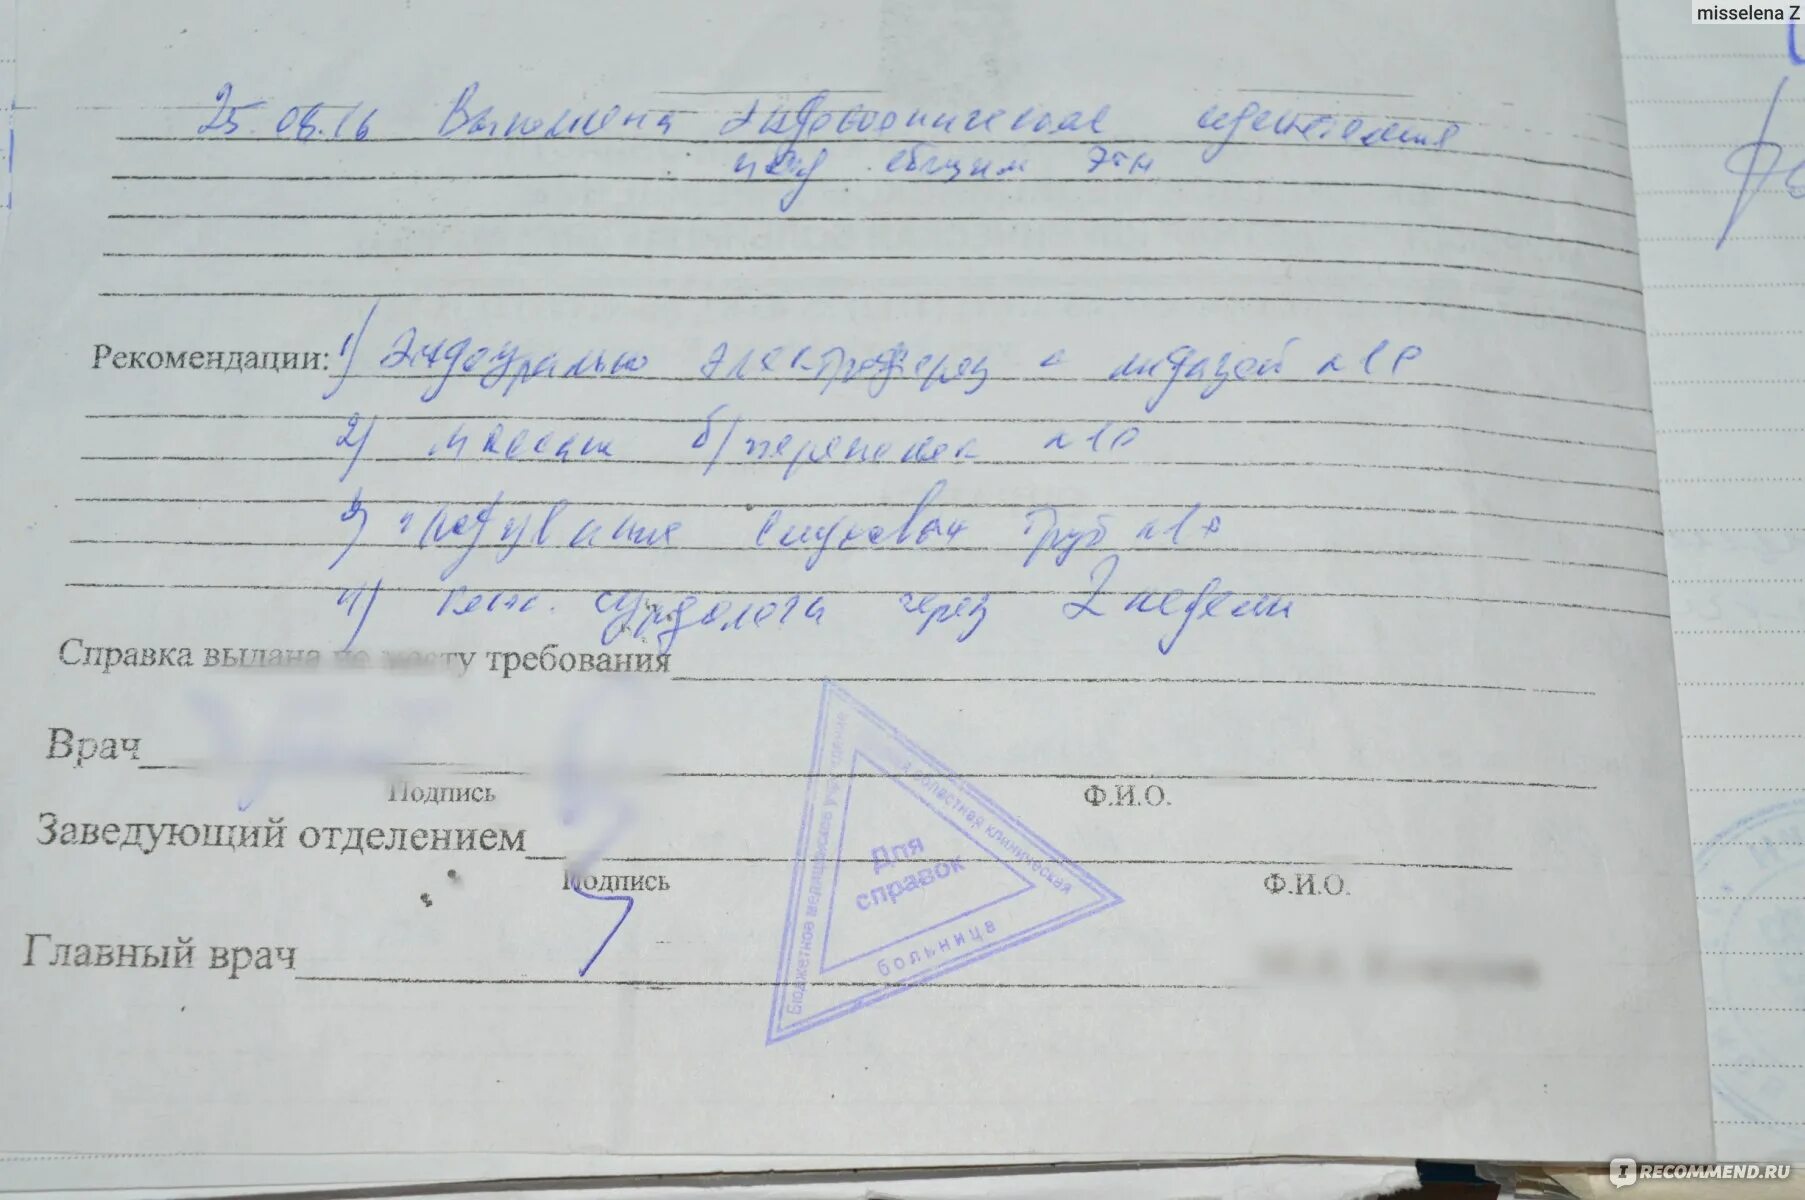 misselena Z
25.08.16 Выполнена эндоскопическая аденотомия
под общим ЭТН
Рекомендации: 1) Эндоурально электрофорез с лидазой n10
2) массаж б/перепонок n10
3) продувание слуховых труб n10
4) конс. сурдолога через 2 недели
Справка выдана по месту требования
Врач
Подпись Ф.И.О.
Заведующий отделением
Подпись Ф.И.О.
Главный врач
Бюджетное медицинское учреждение
областная клиническая
больница
Для
справок
RECOMMEND.RU